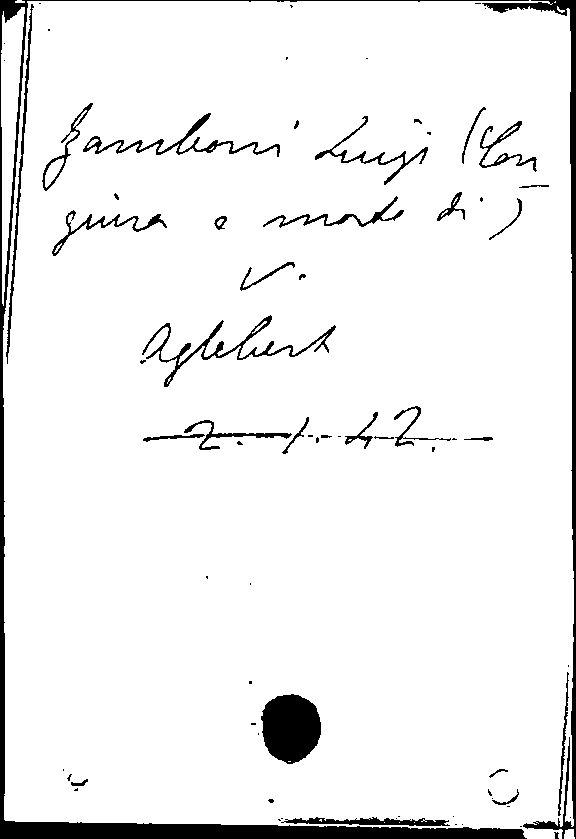 Zamboni Luigi (Con
giura e morte di)
V.
Aglebert
2. 1. 42.